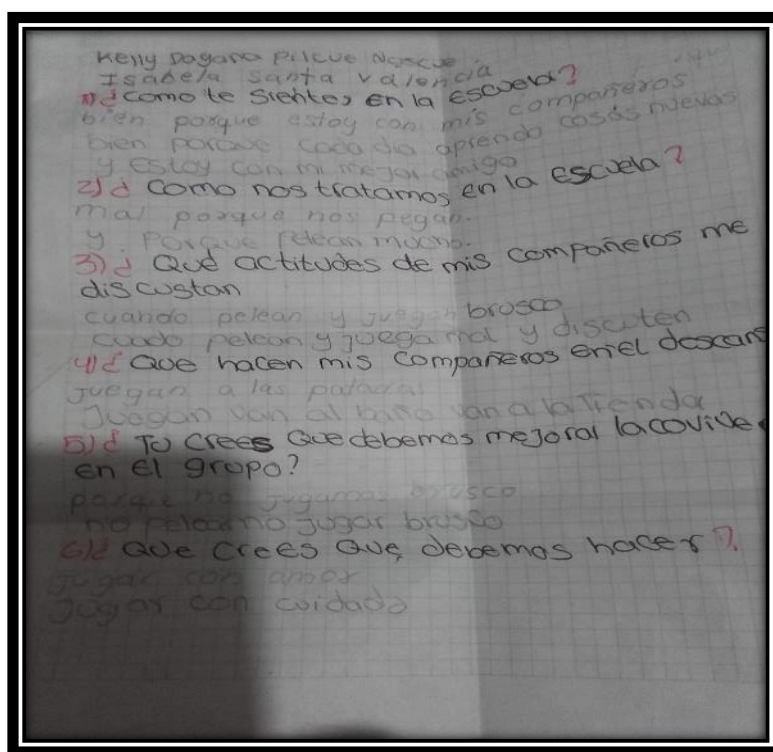 Kelly Dagana Pilcue Nascue
Isabela Santa Valencia
1) ¿como te sientes en la escuela?
bien porque estoy con mis compañeros
bien porque cada dia aprendo cosas nuevas
y estoy con mi mejor amigo
2) ¿ como nos tratamos en la escuela?
mal porque nos pegan.
y. Porque Pelean mucho.
3) ¿ Qué actitudes de mis compañeros me
discustan
cuando pelean y juegan brusco
cuado pelean y juega mal y discuten
4) ¿ Que hacen mis compañeros en el descans
juegan a las patadas
Juegan van al baño van a la Tienda
5) ¿ Tu crees Que debemos mejoral la covive
en el grupo?
porque no jugamos brusco
no pelear no jugar brusco
6) ¿ Que crees Que debemos hacer?
jugar con amor
Jugar con cuidado